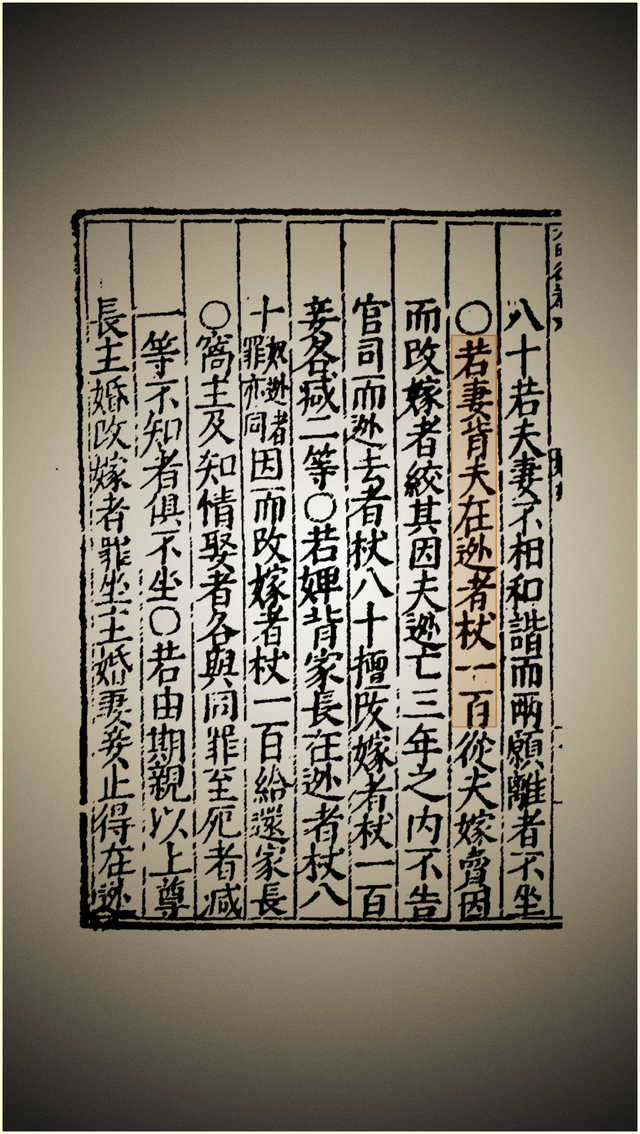 八十若夫妻不相和諧而兩願離者不坐
〇若妻背夫在逃者杖一百從夫嫁賣因
而改嫁者絞其因夫逃亡三年之内不告
官司而逃去者杖八十擅改嫁者杖一百
妾各减二等〇若婢背家長在逃者杖八
十奴逃者罪亦同因而改嫁者杖一百給還家長
〇窩主及知情娶者各與同罪至死者减
一等不知者俱不坐〇若由期親以上尊
長主婚改嫁者罪坐主婚妻妾止得在逃